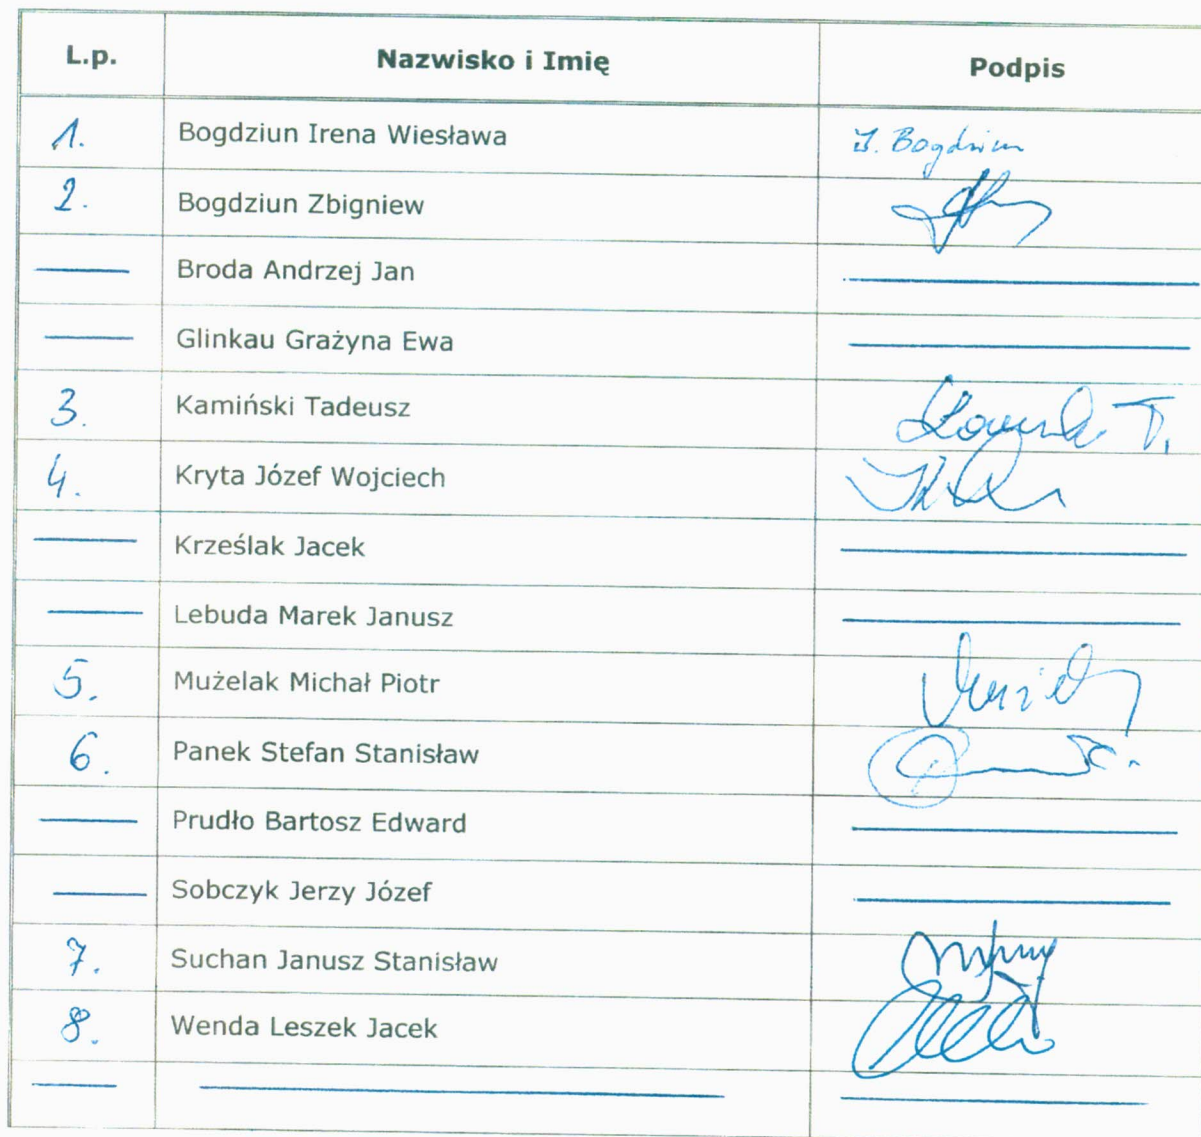 L.p. Nazwisko i Imię Podpis
1. Bogdziun Irena Wiesława I. Bogdziun
2. Bogdziun Zbigniew
Broda Andrzej Jan
Glinkau Grażyna Ewa
3. Kamiński Tadeusz
4. Kryta Józef Wojciech
Krześlak Jacek
Lebuda Marek Janusz
5. Mużelak Michał Piotr
6. Panek Stefan Stanisław
Prudło Bartosz Edward
Sobczyk Jerzy Józef
7. Suchan Janusz Stanisław
8. Wenda Leszek Jacek